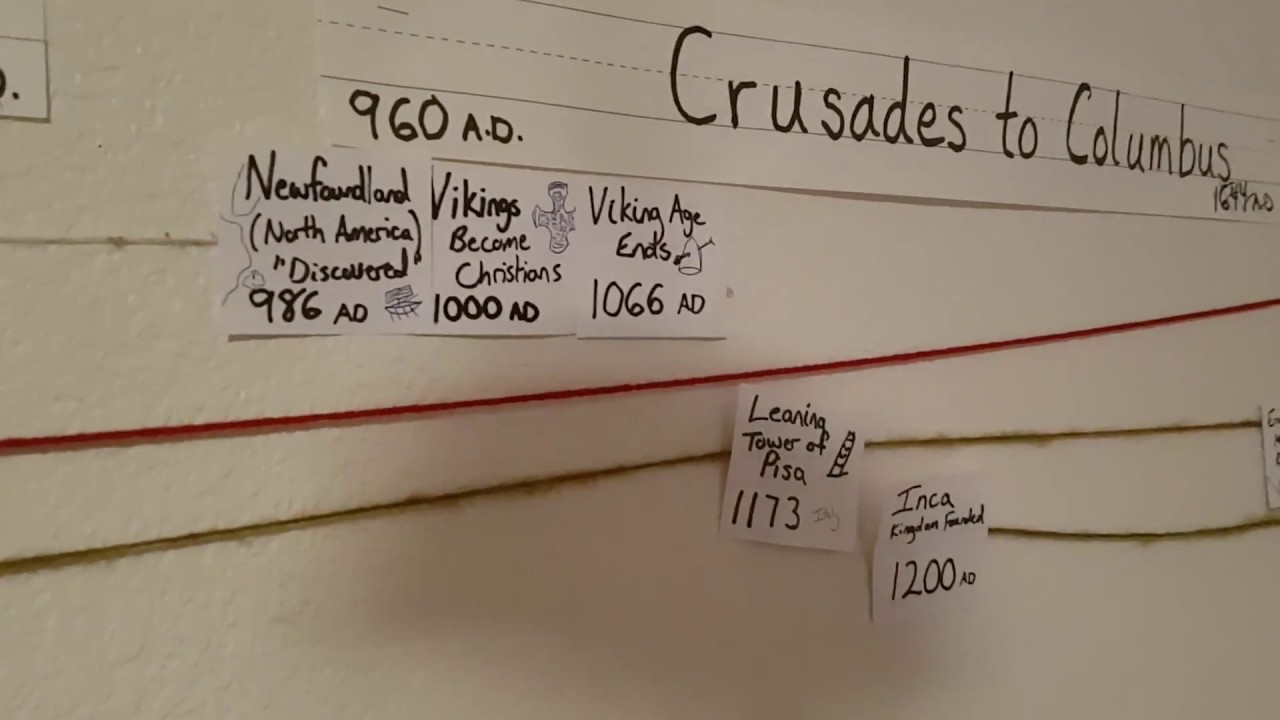 Crusades to Columbus
960 A.D.
Newfoundland
(North America)
"Discovered"
986 AD
Vikings
Become
Christians
1000 AD
Viking Age
Ends
1066 AD
Leaning
Tower of
Pisa
1173 Italy
Inca
Kingdom Founded
1200 AD